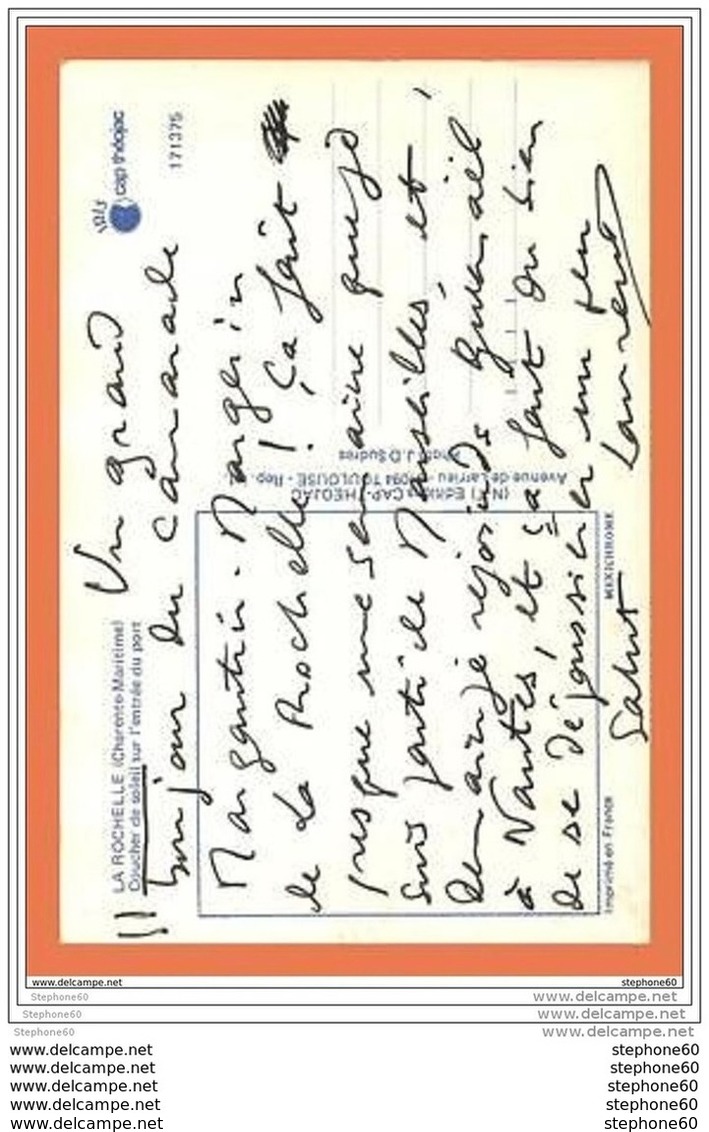 LA ROCHELLE (Charente-Maritime)
Coucher de soleil sur l'entrée du port
cap théojac
171375
!! Un grand
bonjour du camarade
Marggantin - Margerin
de La Rochelle ! Ça fait
presque une semaine que je
suis parti de Marseille, et
demain je rejoinds
à Nantes, et ça fait du bien
de se dégoussiller un peu
Salut Laurent
(N.T) Editions CAP-THEOJAC
Avenue de Larrieu - 31094 TOULOUSE - Rep.
Photo J.D Sudres
Imprimé en France
MEXICHROME
www.delcampe.net stephone60
Stephone60 www.delcampe.net
Stephone60 www.delcampe.net
Stephone60 www.delcampe.net
www.delcampe.net stephone60
www.delcampe.net stephone60
www.delcampe.net stephone60
www.delcampe.net stephone60
www.delcampe.net stephone60